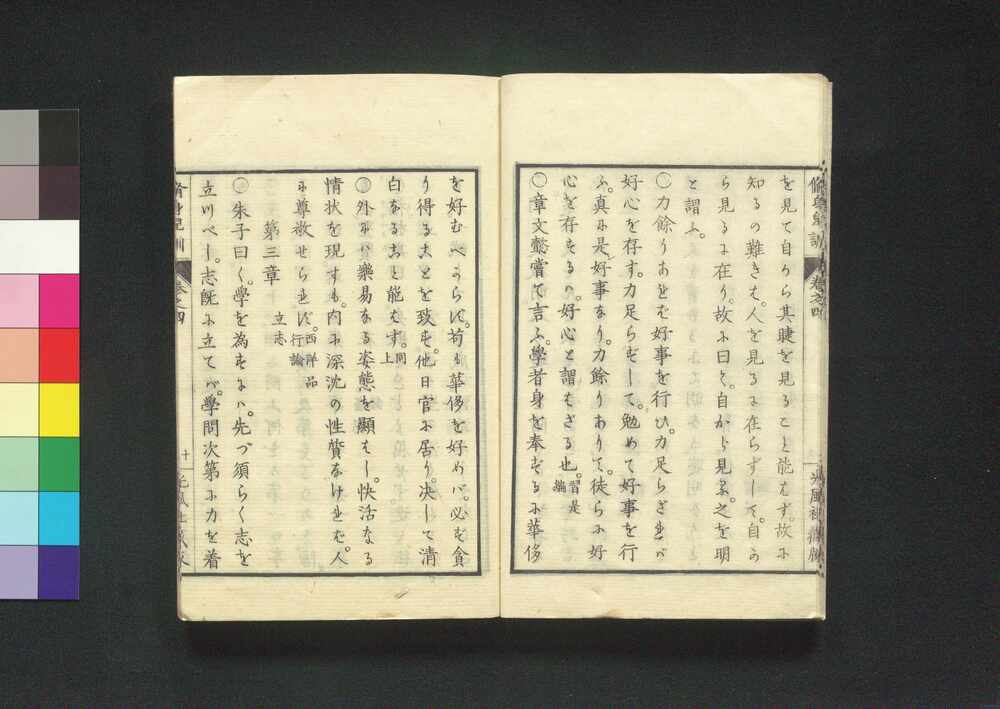 脩身児訓 卷之四 光風社藏版
を見て自から其睫を見ること能はず。故に
知るの難きは、人を見るに在らずして、自か
ら見るに在り。故に曰く、自から見る。之を明
と謂ふ。
〇力餘りあれは好事を行ひ、力足らざれバ
好心を存す。力足らずして、勉めて好事を行
ふ。真に是好事なり。力餘りありて、徒らに好
心を存するハ。好心と謂はざる也。習是編
〇章文懿嘗て言ふ。學者身を奉ずるに華侈
を好むべからず。苟も華侈を好めバ。必ず貪
り得ることを致す。他日官に居り。決して清
白なること能はず。同上
〇外にハ樂易なる姿態を顯はし。快活なる
情状を現すも。内に深沈の性質なければ。人
に尊敬せられず。西洋品行論
第三章 立志
〇朱子曰く。學を為すにハ。先づ須らく志を
立つべし。志既に立てバ。學問次第に力を着
脩身児訓 卷之四 十 光風社藏版